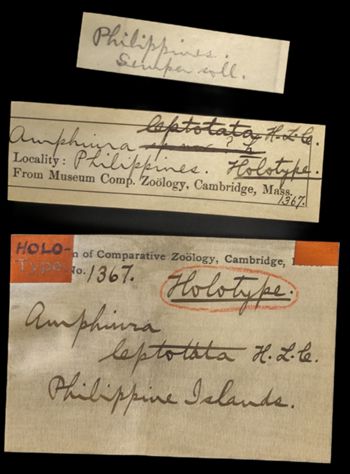 Philippines.
Semper coll.
leptotata H.L.C.
Amphiura
Locality: Philippines. Holotype.
From Museum Comp. Zoölogy, Cambridge, Mass.
1367.
HOLO-
Type
m of Comparative Zoölogy, Cambridge,
No. 1367.
Holotype.
Amphiura
leptotata H.L.C.
Philippine Islands.